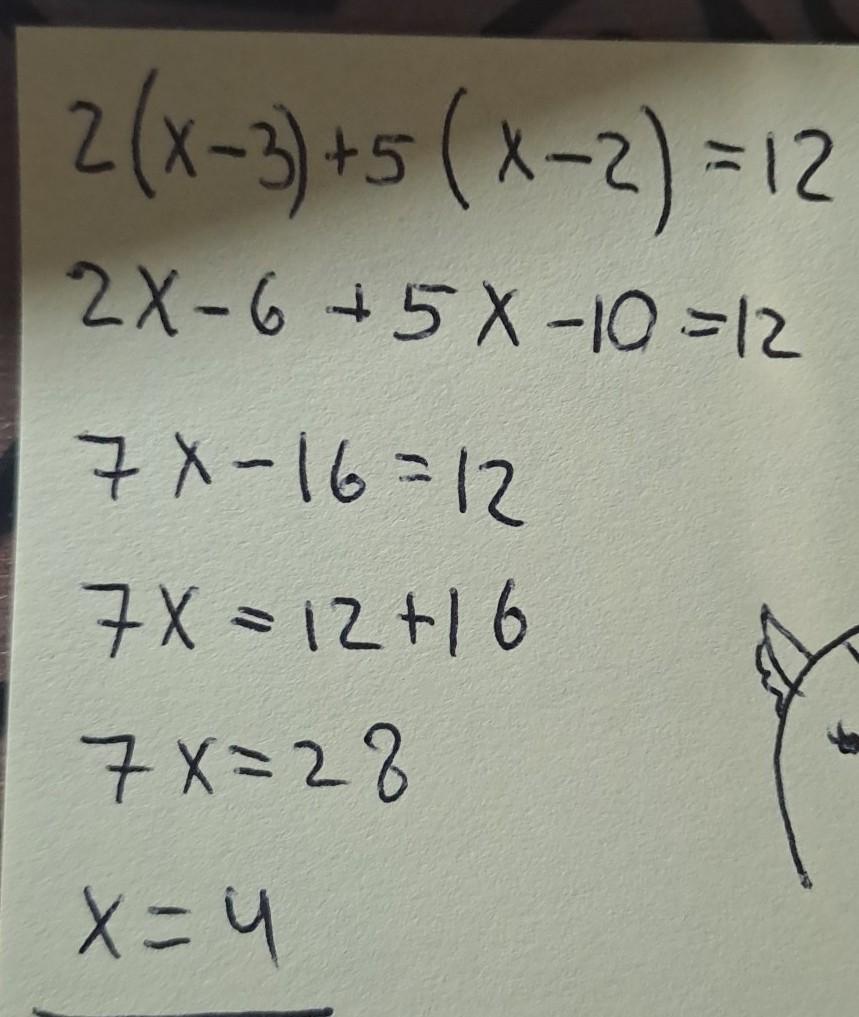 2(x-3)+5(x-2)=12
2x-6+5x-10=12
7x-16=12
7x=12+16
7x=28
x=4